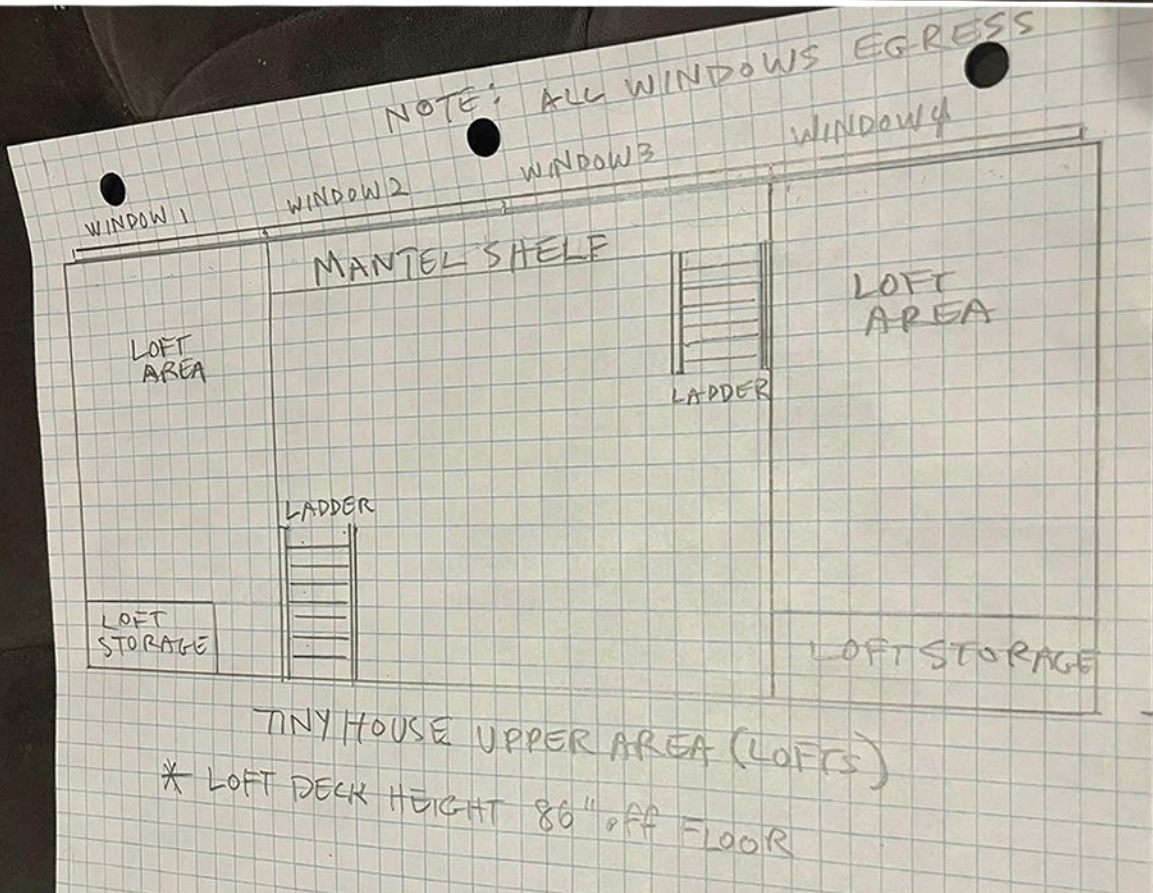 NOTE: ALL WINDOWS EGRESS
WINDOW 1
WINDOW 2
WINDOW 3
WINDOW 4
MANTEL SHELF
LOFT
AREA
LADDER
LOFT
AREA
LADDER
LOFT
STORAGE
LOFT STORAGE
TINY HOUSE UPPER AREA (LOFTS)
* LOFT DECK HEIGHT 86" off FLOOR